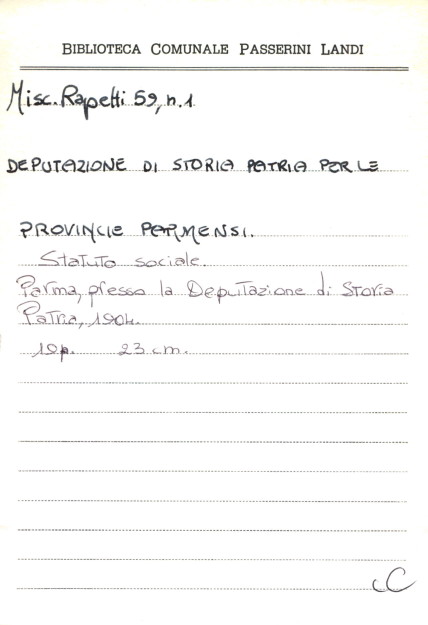 BIBLIOTECA COMUNALE PASSERINI LANDI
Misc. Rapetti 59, n. 1
DEPUTAZIONE DI STORIA PATRIA PER LE
PROVINCIE PARMENSI.
Statuto sociale.
Parma, presso la Deputazione di Storia
Patria, 1904.
19p. 23 cm.